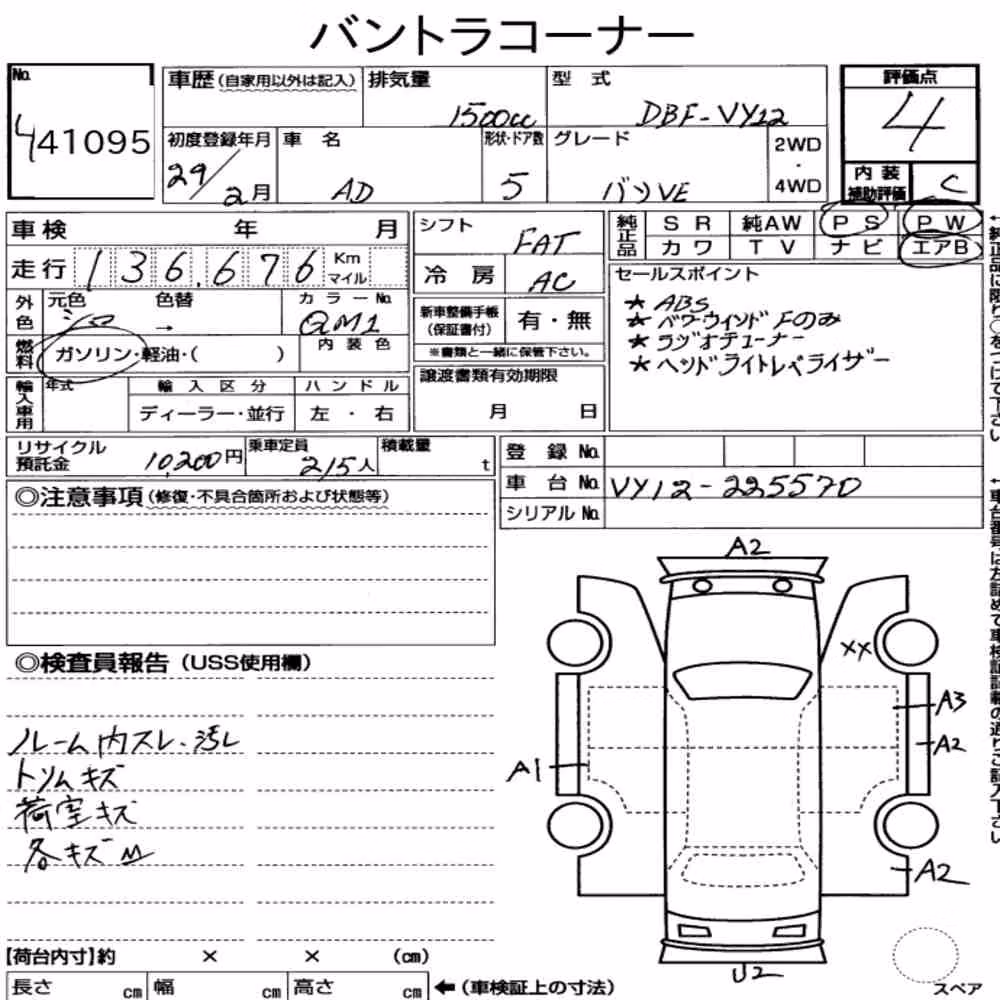 バントラコーナー
No. 441095
車歴(自家用以外は記入)
排気量 1500cc
型式 DBF-VY12
評価点 4
初度登録年月 29/2月
車名 AD
形状・ドア数 5
グレード バンVE
2WD・4WD
内装補助評価 C
車検 年 月
走行 136,676 Km マイル
外色 元色 シロ 色替 → カラーNo. QM1
燃料 ガソリン・軽油・( ) 内装色
輸入車用 年式 輸入区分 ハンドル
ディーラー・並行 左・右
シフト FAT
冷房 AC
新車整備手帳(保証書付) 有・無
※書類と一緒に保管下さい。
譲渡書類有効期限
月 日
純正品 SR 純AW PS PW
カワ TV ナビ エアB
セールスポイント
★ ABS
★ パワーウィンドFのみ
★ ラジオチューナー
★ ヘッドライトレベライザー
リサイクル預託金 10,200円
乗車定員 2/5人
積載量 t
登録No.
車台No. VY12-225570
シリアルNo.
◎注意事項(修復・不具合箇所および状態等)
◎検査員報告(USS使用欄)
ルーム内スレ・汚レ
トリムキズ
荷室キズ
各キズM
A2
XX
A3
A2
A1
A2
U2
スペア
【荷台内寸】約 × × (cm)
長さ cm 幅 cm 高さ cm ←(車検証上の寸法)
←純正品に限り○をつけて下さい
←車台番号は左詰めで車検証記載の通りご記入下さい